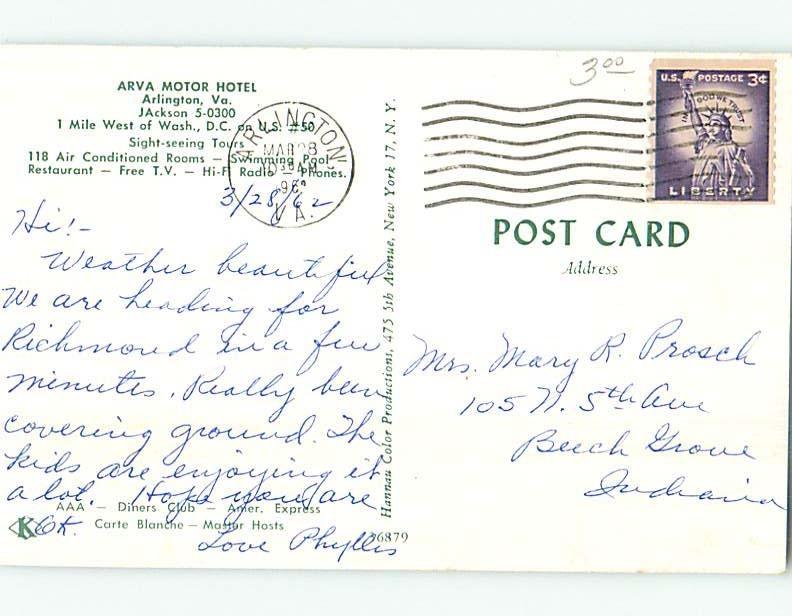 ARVA MOTOR HOTEL
Arlington, Va.
JAckson 5-0300
1 Mile West of Wash., D.C. on U.S. #50
Sight-seeing Tours
118 Air Conditioned Rooms — Swimming Pool
Restaurant — Free T.V. — Hi-Fi Radio — Phones.
3/28/62
Hi!-
Weather beautiful
We are heading for
Richmond in a few
minutes. Really been
covering ground. The
kids are enjoying it
a lot. Hope you are
OK.
Love Phyllis
AAA — Diners Club — Amer. Express
Carte Blanche — Master Hosts
K
26879
ARLINGTON
MAR 28
VA.
Hannau Color Productions, 475 5th Avenue, New York 17, N. Y.
3 00
U.S. POSTAGE 3¢
IN GOD WE TRUST
LIBERTY
POST CARD
Address
Mrs. Mary R. Prosch
105 N. 5th Ave
Beech Grove
Indiana